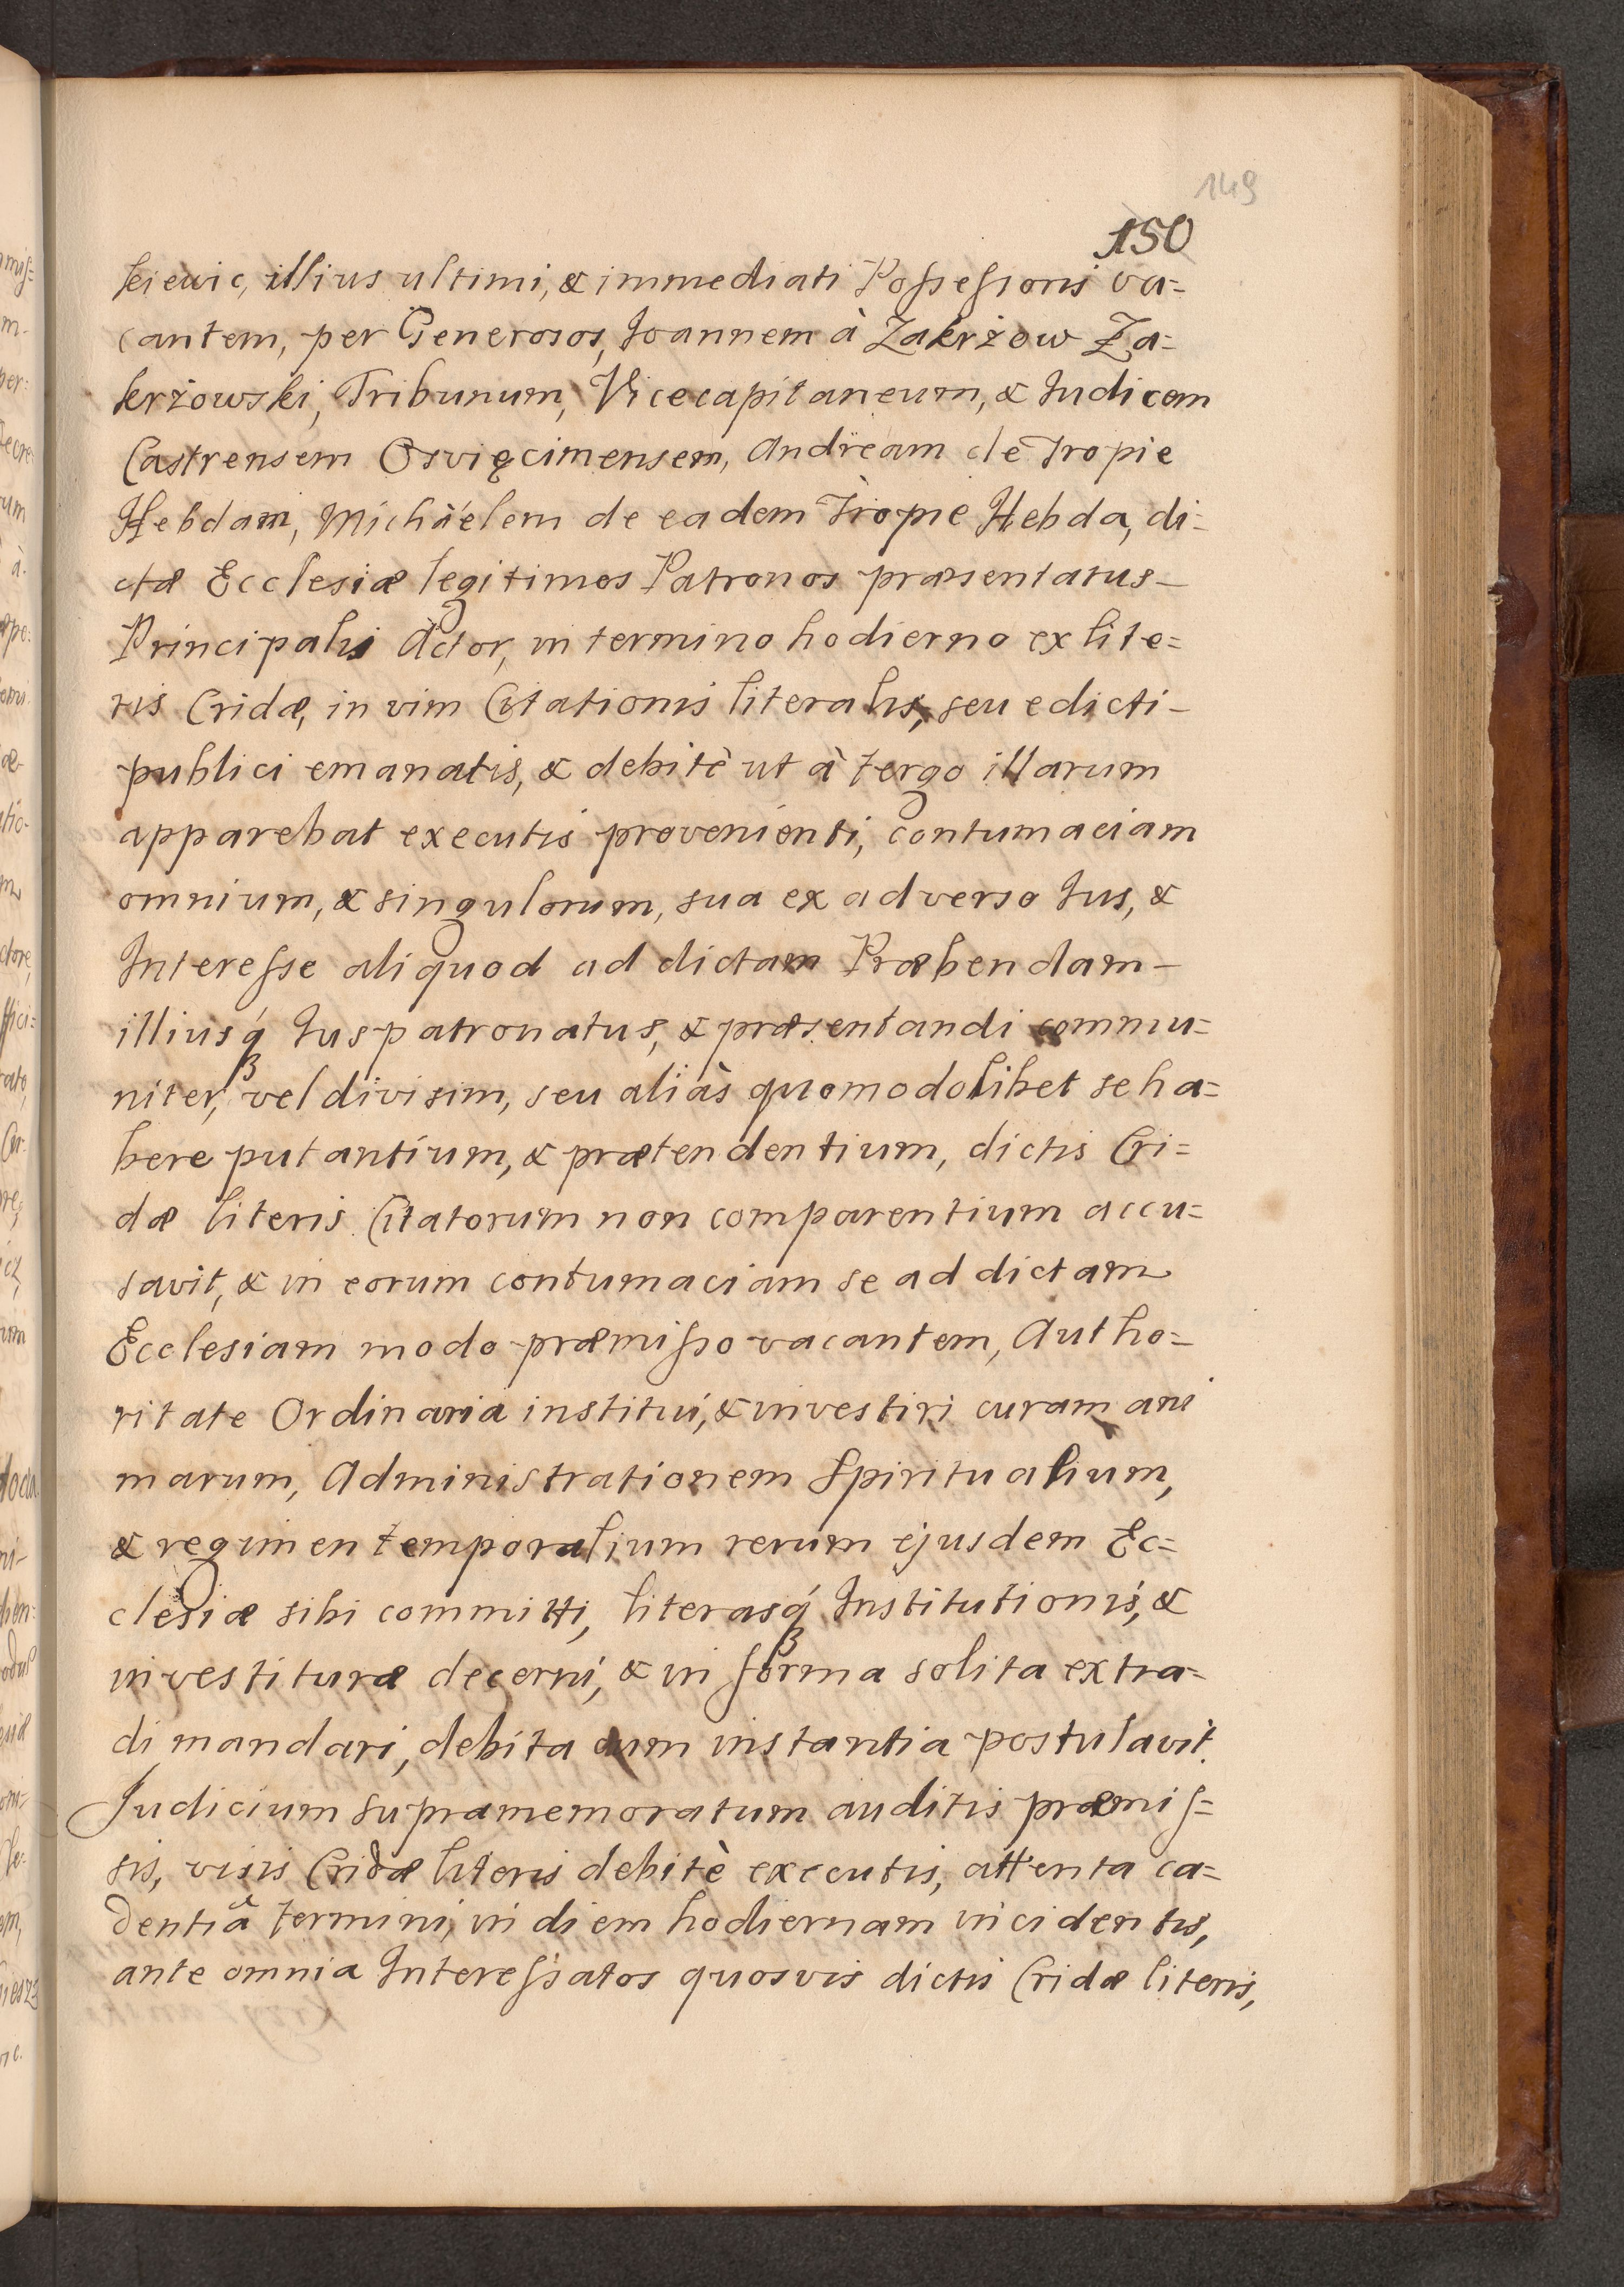 149
150
kiewic, illius ultimi, & immediati Possessoris va=
cantem, per Generosos, Joannem à Zakrżow Za=
krżowski, Tribunum, Vicecapitaneum, & Judicem
Castrensem Osvięcimensem, Andream de Tropie
Hebdam, Michäelem de eadem Tropie Hebda, di=
ctæ Ecclesiæ legitimos Patronos præsentatus–
Principalis Actor, in termino hodierno ex lite=
ris Cridæ, in vim Citationis literalis, seu edicti–
publici emanatis, & debitè ut à tergo illarum
apparebat executis provenienti, contumaciam
omnium, & singulorum, sua ex adverso Jus, &
Interesse aliquod ad dictam Præbendam–
illiusq́ Juspatronatus, & præsentandi commu=
niter, vel divisim, seu aliàs quomodolibet se ha=
bere putantium, & prætendentium, dictis Cri=
dæ literis Citatorum non comparentium accu=
savit, & in eorum contumaciam se ad dictam
Ecclesiam modo præmisso vacantem, Autho=
ritate Ordinaria institui, & investiri curam ani
marum, Administrationem Spiritualium,
& regimen temporalium rerum ejusdem Ec=
clesiæ sibi committi, literasq́ Institutionis, &
investituræ decerni, & in forma solita extra=
di mandari, debita cum instantia postulavit.
Judicium supramemoratum auditis præmis=
sis, visis Cridæ literis debitè executis, attenta ca=
dentiâ termini, in diem hodiernam incidentis,
ante omnia Interessatos quosvis dictis Cridæ literis,